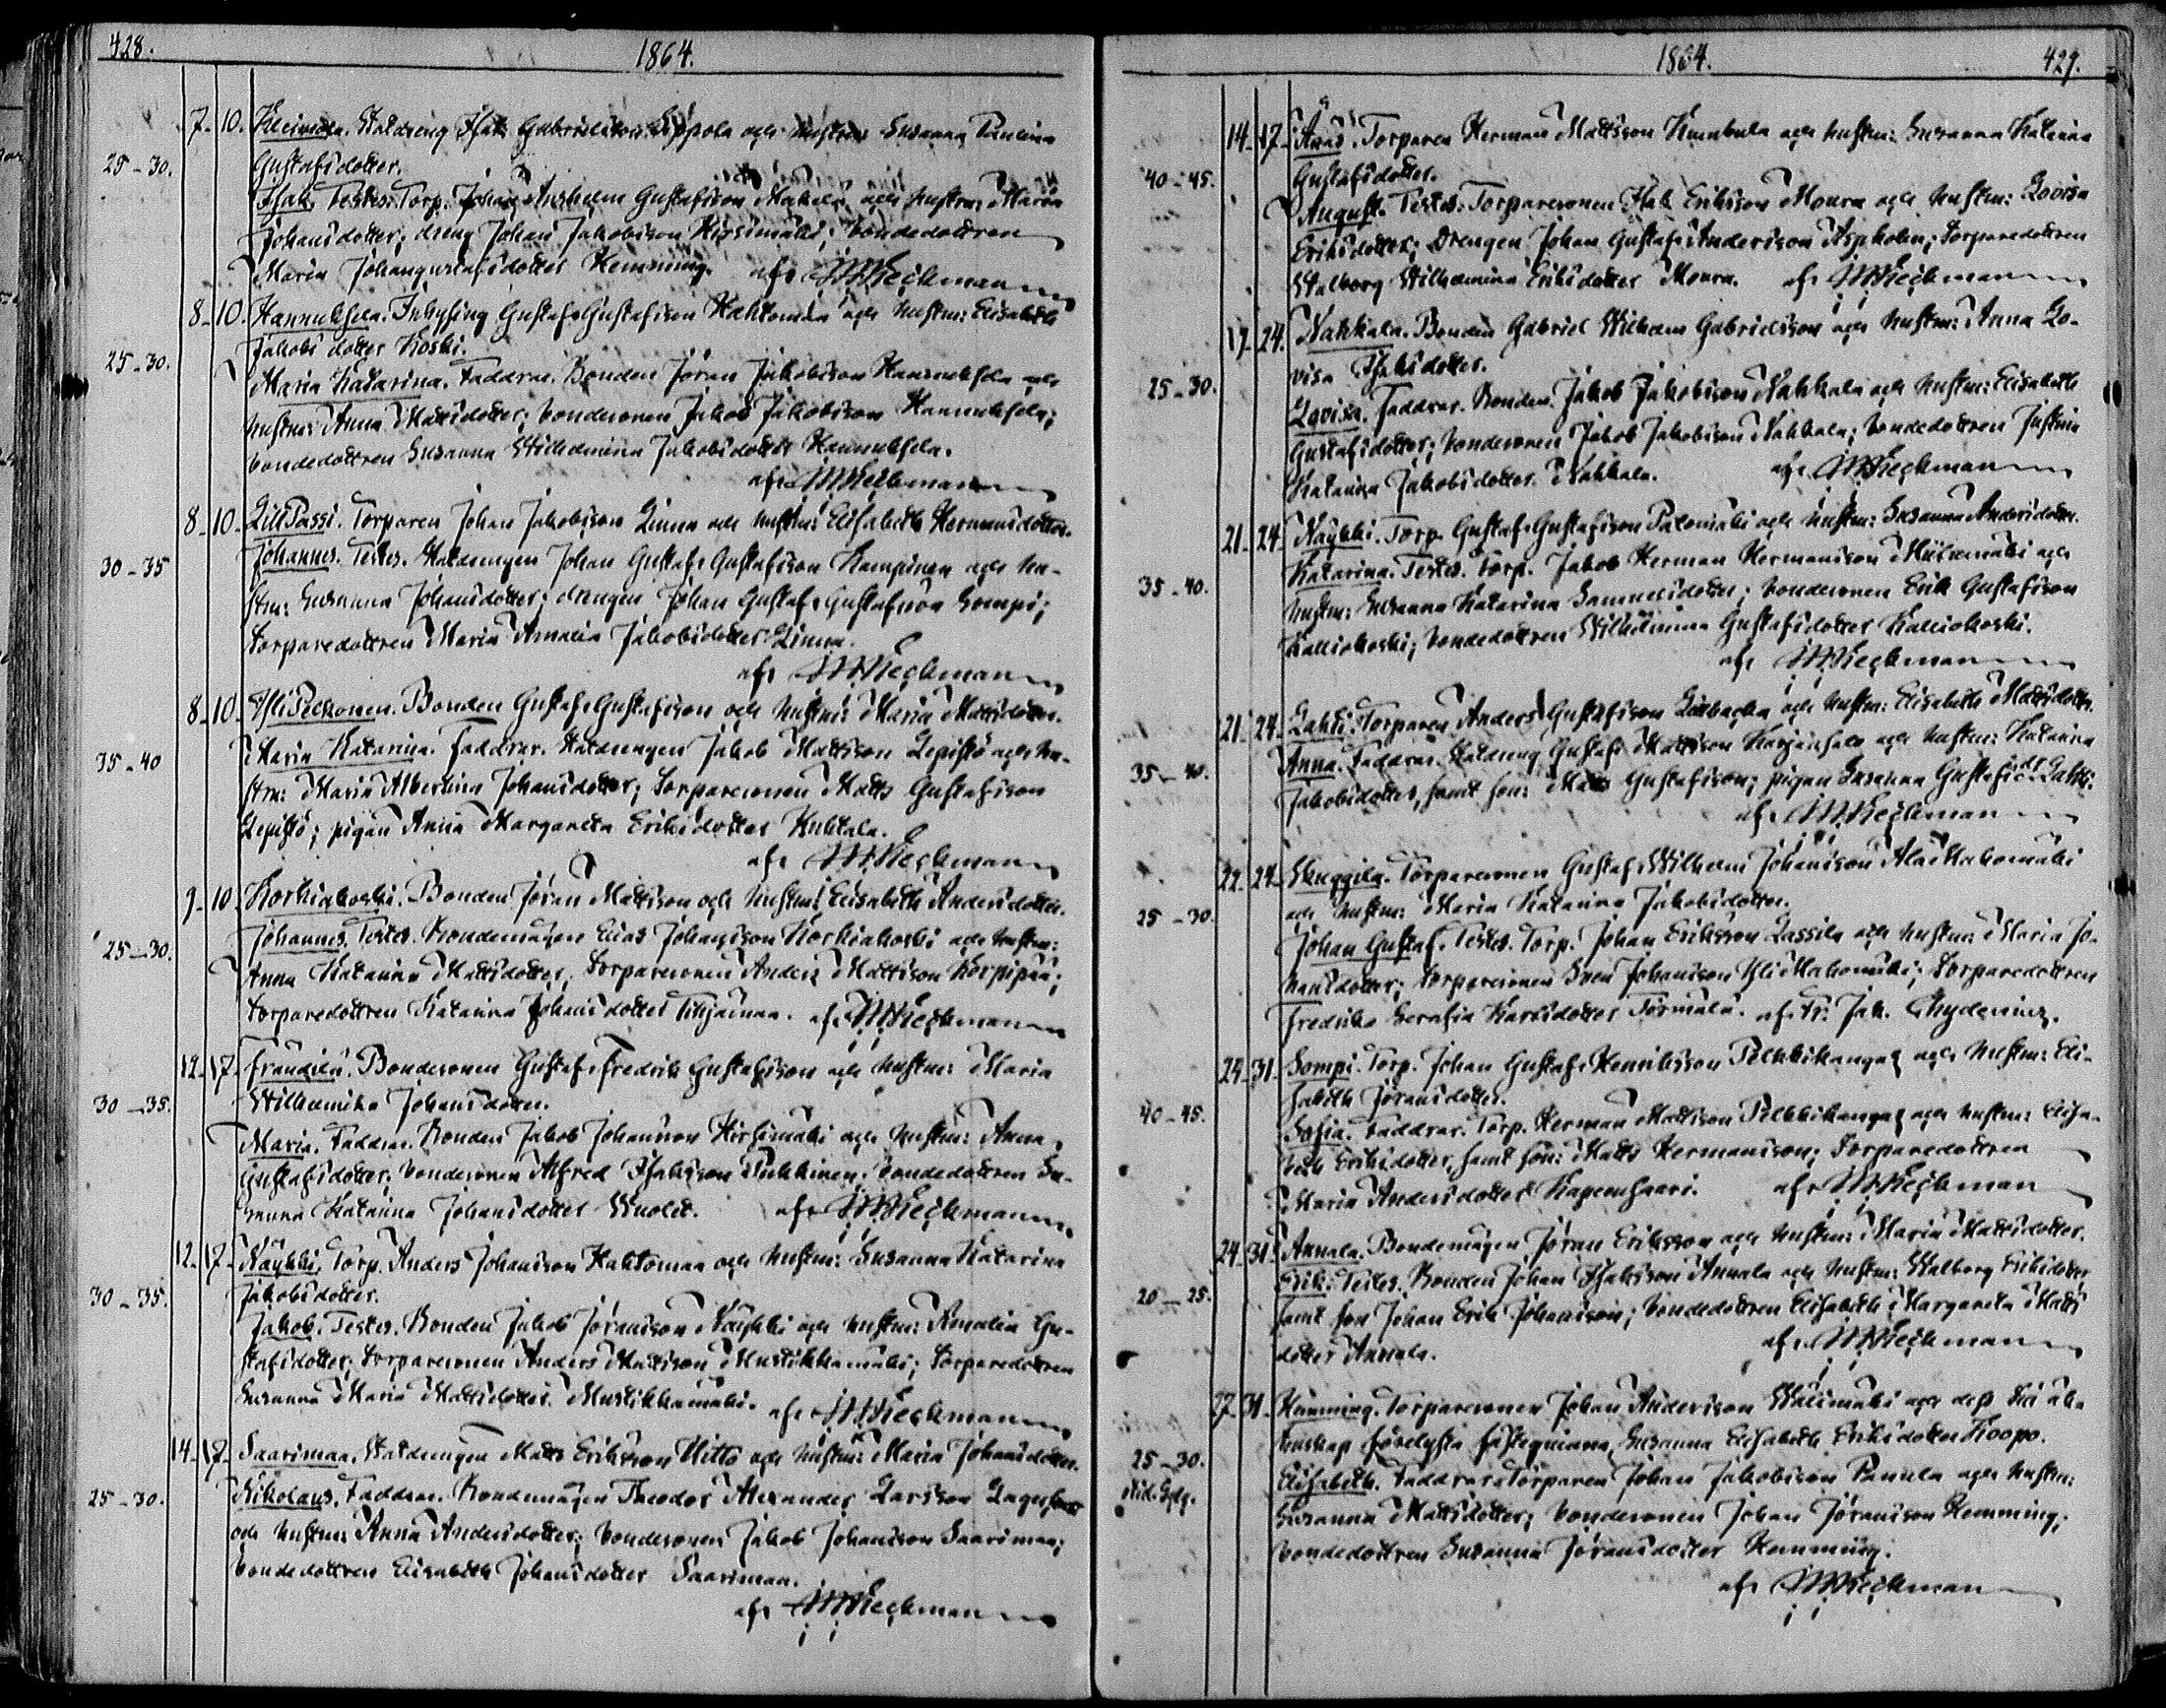 428.
1864.
7. 10. Statdreng Isak Gabrielsson Seppola och hustrun Susanna Paulina
25-30. Gustafsdotter.
Isak. Testes: Torp. Johan Anshelm Gustafsson Makela och hustrun Maria
Johansdotter; dreng Johan Jakobsson Hirsimäki; bondedottren
Maria Johangustafsdotter Hemming. af
8-10. Hannuksela. Inhysing Gustaf Gustafsson Kahtomaa och hustrun: Elisabeth
Jakobsdotter Koski.
25-30. Maria Katarina. Faddrar. Bonden Jöran Jakobsson Hannuksela och
hustrun: Anna Mattsdotter; bondesonen Jakob Jakobsson Hannuksela;
bondedottren Susanna Wilhelmina Jakobsdotter Hannuksela.
af
8-10. LillPassi. Torparen Johan Jakobsson Linna och hustrun: Elisabeth Hermansdotter.
30-35 Johannes. Testes. Statdrengen Johan Gustaf Gustafsson Kampinen och hu-
strun: Susanna Johansdotter; drengen Johan Gustaf Gustafsson Sompi;
torparedottren Maria Amalia Jakobsdotter Linna.
af
8-10. YliPelkonen. Bonden Gustaf Gustafsson och hustrun: Maria Mattsdotter.
35-40 Maria Katarina. Faddrar. Statdrengen Jakob Mattsson Lepistö och hu-
strun: Maria Albertina Johansdotter; torparesonen Matts Gustafsson
Lepistö; pigan Anna Margareta Eriksdotter Huhtala.
af
9-10. Korkiakoski. Bonden Jöran Mattsson och hustrun: Elisabeth Andersdotter.
25-30. Johannes. Testes. Bondemågen Elias Johansson Korkiakoski och hustrun:
Anna Katarina Mattsdotter; torparesonen Anders Mattsson Korpipää;
torparedottren Katarina Johansdotter af
12-17. Frandilä. Bondesonen Gustaf Fredrik Gustafsson och hustrun Maria
30-35. Wilhelmina Johansdotter.
Maria. Faddrar. Bonden Jakob Johansson Hirsimäki och hustrun: Anna
Gustafsdotter; bondesonen Alfred Isaksson Puhkinen; bondedottren Su-
sanna Katarina Johansdotter Wuolet. af
12-17. Näykki. Torp. Anders Johansson Kahtomaa och hustrun: Susanna Katarina
30-35. Jakobsdotter.
Jakob. Testes. Bonden Jakob Jöransson Näykki och hustrun: Amalia Gu-
stafsdotter; torparesonen Anders Mattsson Mustikkamäki; torparedottren
Susanna Maria Mattsdotter Mustikkamäki. af
14-17. Saarimaa. Statdrengen Matts Eriksson Hitto och hustrun: Maria Johansdotter.
25-30. Nikolaus. Faddrar. Bondemågen Theodor Alexander Larsson
och hustrun: Anna Andersdotter; bondesonen Jakob Johansson Saarimaa;
bondedottren Elisabeth Johansdotter Saarimaa.
af
1864.
429.
14-17. Torparen Herman Mattsson och hustrun: Susanna Katarina
40-45. Gustafsdotter.
August. Testes. Torparesonen Isak Eriksson Moura och hustrun: Lovisa
Eriksdotter; drengen Johan Gustaf Andersson Aspholm; torparedottren
Walborg Wilhelmina Eriksdotter Moura. af
19-24. Nahkala. Bonden Gabriel Wilhelm Gabrielsson och hustrun: Anna Lo-
visa Isaksdotter.
25-30. Lovisa. Faddrar. Bonden Jakob Jakobsson Nahkala och hustrun: Elisabeth
Gustafsdotter; bondesonen Jakob Jakobsson Nahkala; bondedottren Justina
Katarina Jakobsdotter Nahkala. af
21-24. Näykki. Torp. Gustaf Gustafsson Palomäki och hustrun: Susanna Andersdotter.
35-40. Katarina. Testes. Torp. Jakob Herman Hermansson och
hustrun: Susanna Katarina Samuelsdotter; bondesonen Erik Gustafsson
Kalliokoski; bondedottren Wilhelmina Gustafsdotter Kalliokoski.
af
21-24. Lahti. Torparen Anders Gustafsson och hustrun: Elisabeth Mattsdotter.
35-40. Anna. Faddrar. Statdreng Gustaf Mattsson Karjanlaks och hustrun: Katarina
Jakobsdotter, samt son: Matts Gustafsson; pigan Susanna Gustafsdr Lahti.
af
22-24. Skuggila. Torparesonen Gustaf Wilhelm Johansson AlaHakomäki
25-30. och hustrun: Maria Katarina Jakobsdotter.
Johan Gustaf. Testes. Torp. Johan Eriksson Lassila och hustrun: Maria Jo-
hansdotter; torparesonen Sven Johansson YliHakomäki; torparedottren
Fredrika Serafia Karlsdotter Törmälä. af Fr. Jak. Chydenius.
24-31. Sompi. Torp. Johan Gustaf Henriksson Pelkkikangas och hustrun: Eli-
sabeth Jöransdotter.
40-45. Sofia. Faddrar. Torp. Herman Mattsson Pelkkikangas och hustrun: Elisa-
beth Eriksdotter, samt son: Matts Hermansson; torparedottren
Maria Andersdotter af
24-31. Annala. Bondemågen Jöran Eriksson och hustrun: Maria Mattsdotter.
20-25. Erik. Testes. Bonden Johan Isaksson Annala och hustrun: Walborg Eriksdotter
samt son Johan Erik Johansson; bondedottren Elisabeth Margareta Matts
dotter Annala. af
27-31. Hemming. Torparesonen Johan Andersson Wälimäki och dess till äkta
Susanna Elisabeth Eriksdotter Koopo.
25-30. Elisabeth. Faddrar: Torparen Johan Jakobsson Pannula och hustrun:
Susanna Mattsdotter; bondesonen Johan Jöransson Hemming;
bondedottren Susanna Jöransdotter Hemming.
af